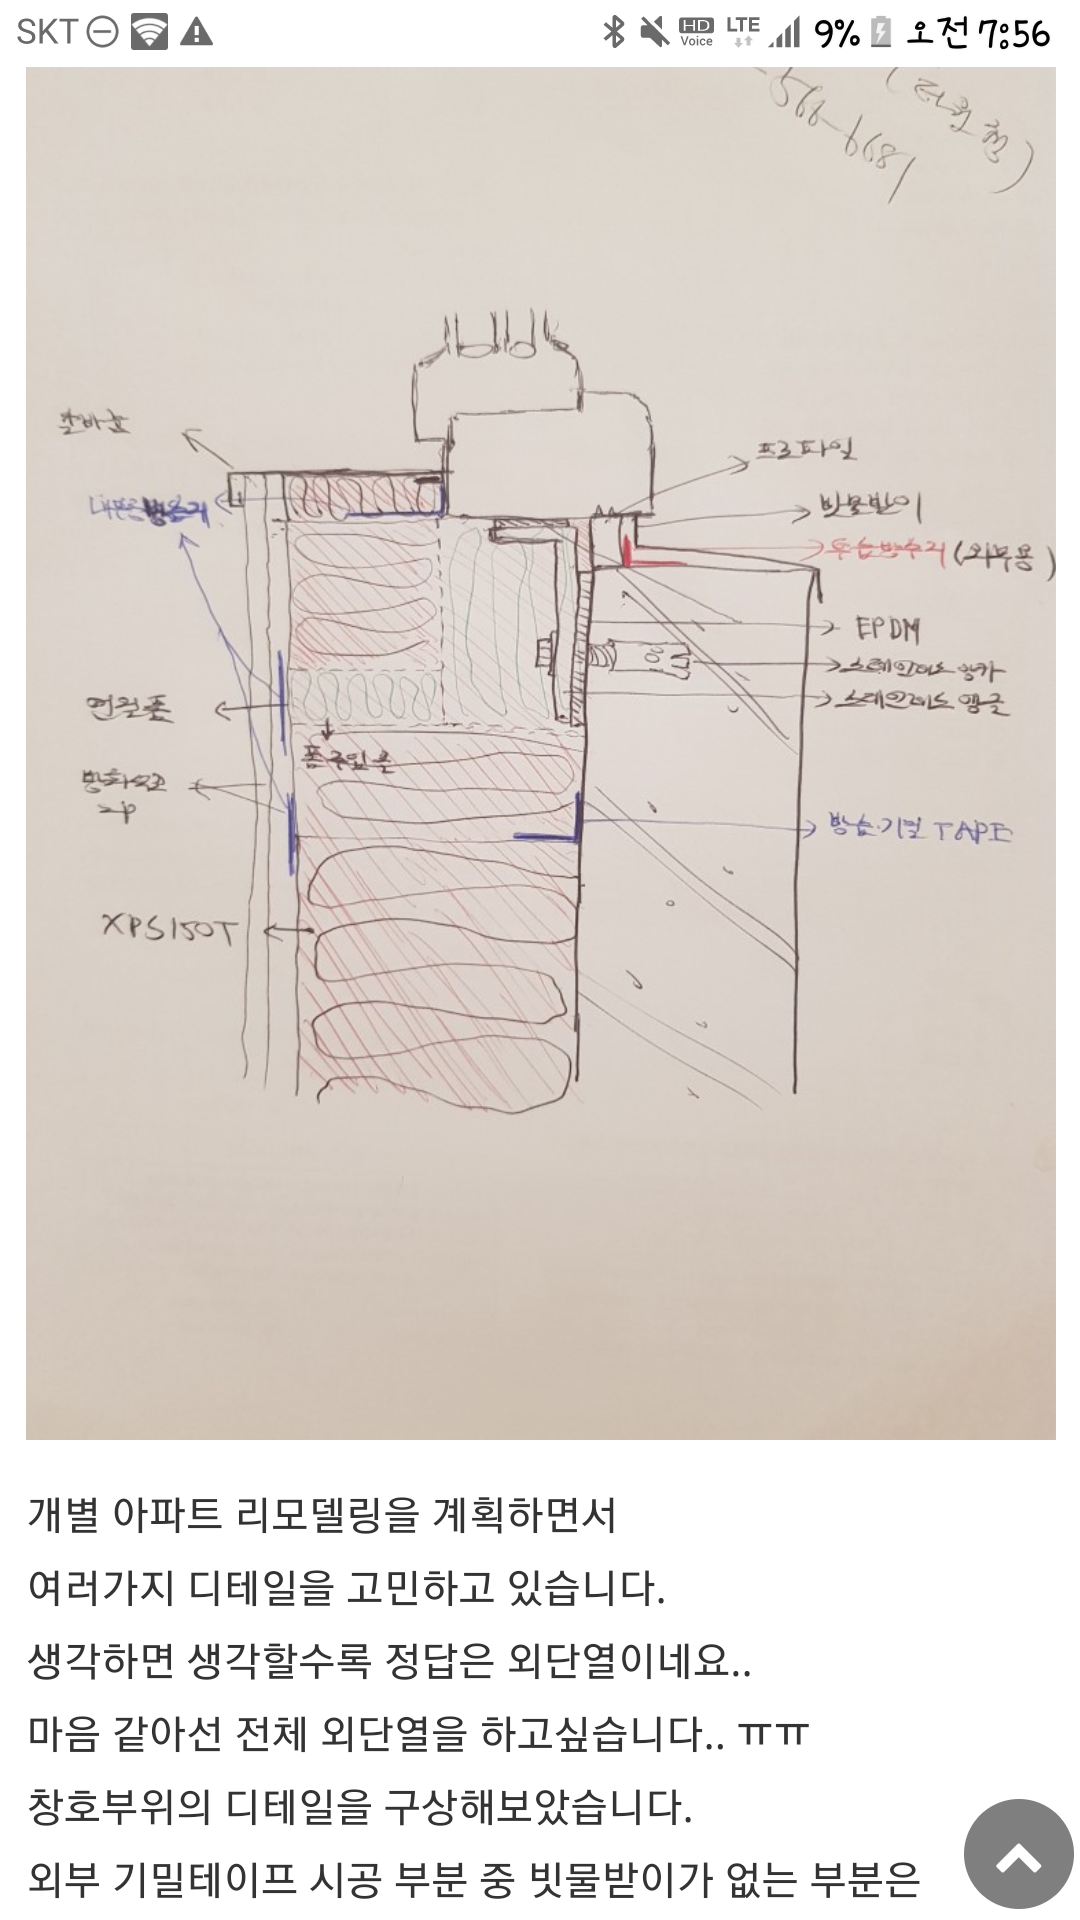 SKT HD Voice LTE 9% 오전 7:56
(
-566-6681
프로파일
빗물받이
투습방수지 (외부용)
EPDM
스테인레스 앙카
스테인레스 앵글
연질폼
폼 주입 구
방화석고
2P
방습·기밀 TAPE
XPS150T
개별 아파트 리모델링을 계획하면서
여러가지 디테일을 고민하고 있습니다.
생각하면 생각할수록 정답은 외단열이네요..
마음 같아선 전체 외단열을 하고싶습니다.. ㅠㅠ
창호부위의 디테일을 구상해보았습니다.
외부 기밀테이프 시공 부분 중 빗물받이가 없는 부분은